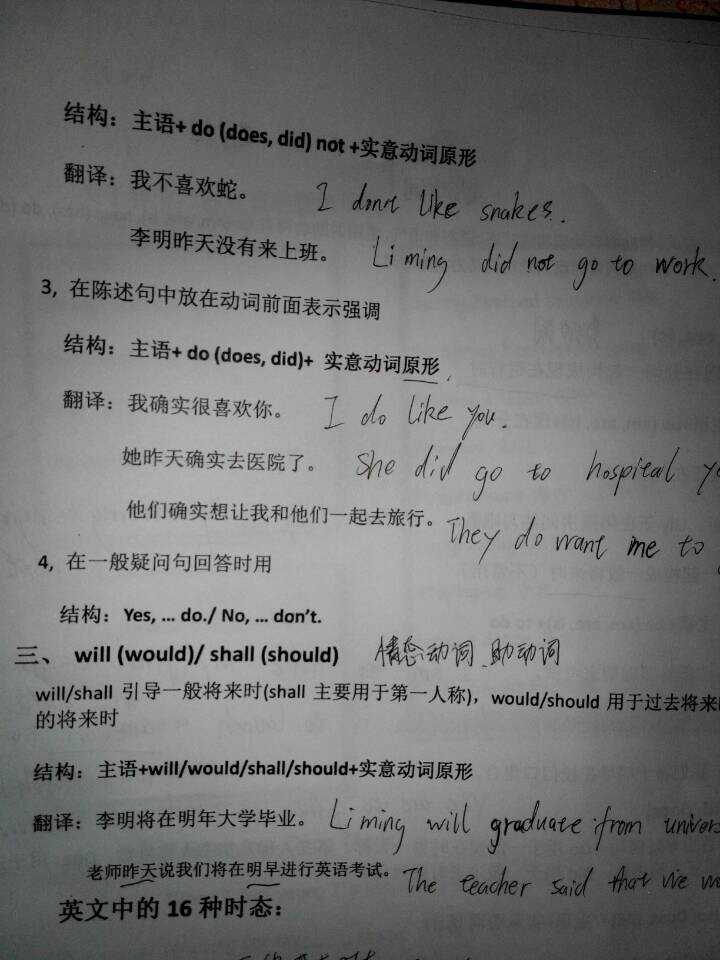 结构：主语+ do (does, did) not +实意动词原形
翻译：我不喜欢蛇。 I don't like snakes.
李明昨天没有来上班。 Li ming did not go to work.
3, 在陈述句中放在动词前面表示强调
结构：主语+ do (does, did)+ 实意动词原形
翻译：我确实很喜欢你。 I do like you.
她昨天确实去医院了。 She did go to hospital
他们确实想让我和他们一起去旅行。 They do want me to
4, 在一般疑问句回答时用
结构：Yes, ... do./ No, ... don't.
三、 will (would)/ shall (should) 情态动词、助动词
will/shall 引导一般将来时(shall 主要用于第一人称)，would/should 用于过去将来
的将来时
结构：主语+will/would/shall/should+实意动词原形
翻译：李明将在明年大学毕业。 Li ming will graduate from univers
老师昨天说我们将在明早进行英语考试。 The teacher said that we
英文中的 16 种时态：